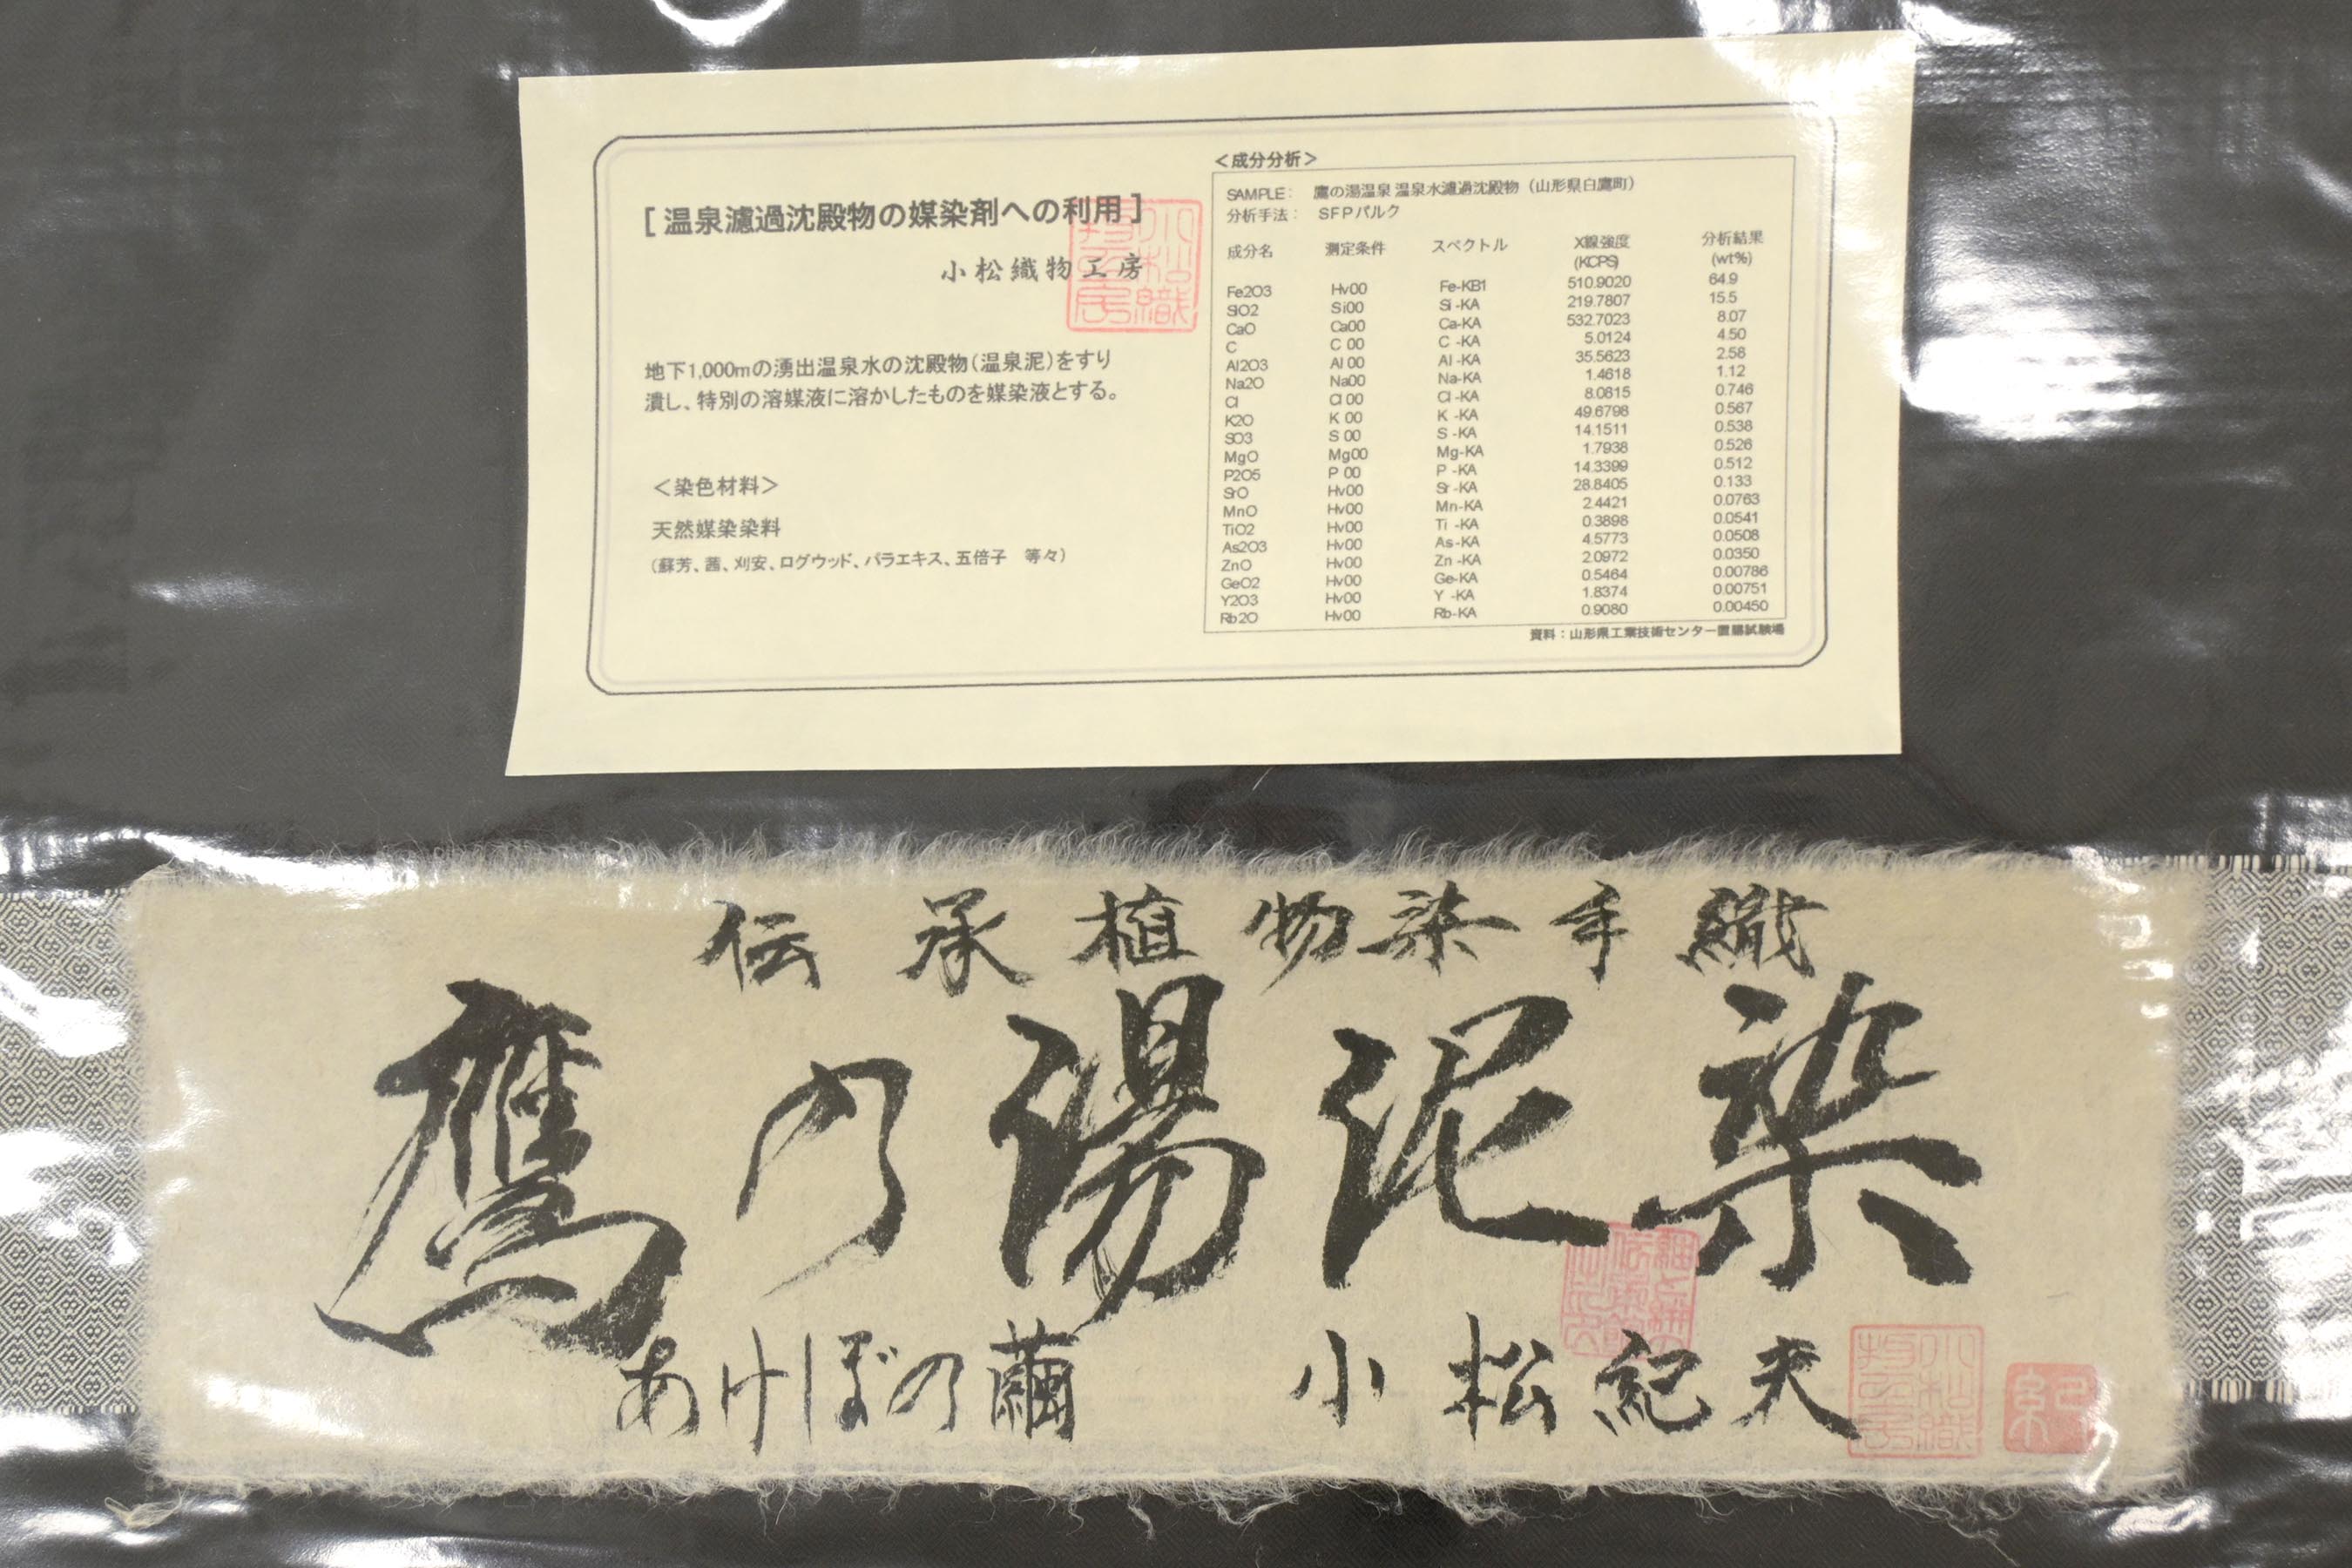 [ 温泉濾過沈殿物の媒染剤への利用 ]
小松織物工房
地下1,000mの湧出温泉水の沈殿物(温泉泥)をすり
潰し、特別の溶媒液に溶かしたものを媒染液とする。
<染色材料>
天然媒染染料
(蘇芳、茜、刈安、ログウッド、バラエキス、五倍子 等々)
<成分分析>
SAMPLE: 鷹の湯温泉 温泉水濾過沈殿物 (山形県白鷹町)
分析手法: SFPバルク
成分名 測定条件 スペクトル X線強度 (KCPS) 分析結果 (wt%)
Fe2O3 Hv00 Fe-KB1 510.9020 64.9
SiO2 Si00 Si-KA 219.7807 15.5
CaO Ca00 Ca-KA 532.7023 8.07
C C 00 C -KA 5.0124 4.50
Al2O3 Al 00 Al -KA 35.5623 2.58
Na2O Na00 Na-KA 1.4618 1.12
Cl Cl 00 Cl -KA 8.0815 0.746
K2O K 00 K -KA 49.6798 0.567
SO3 S 00 S -KA 14.1511 0.538
MgO Mg00 Mg-KA 1.7938 0.526
P2O5 P 00 P -KA 14.3399 0.512
SrO Hv00 Sr -KA 28.8405 0.133
MnO Hv00 Mn-KA 2.4421 0.0763
TiO2 Hv00 Ti -KA 0.3898 0.0541
As2O3 Hv00 As-KA 4.5773 0.0508
ZnO Hv00 Zn -KA 2.0972 0.0350
GeO2 Hv00 Ge-KA 0.5464 0.00786
Y2O3 Hv00 Y -KA 1.8374 0.00751
Rb2O Hv00 Rb-KA 0.9080 0.00450
資料:山形県工業技術センター置賜試験場
伝承植物染手織
鷹の湯泥染
あけぼの繭 小松紀夫
小松織物工房
紀